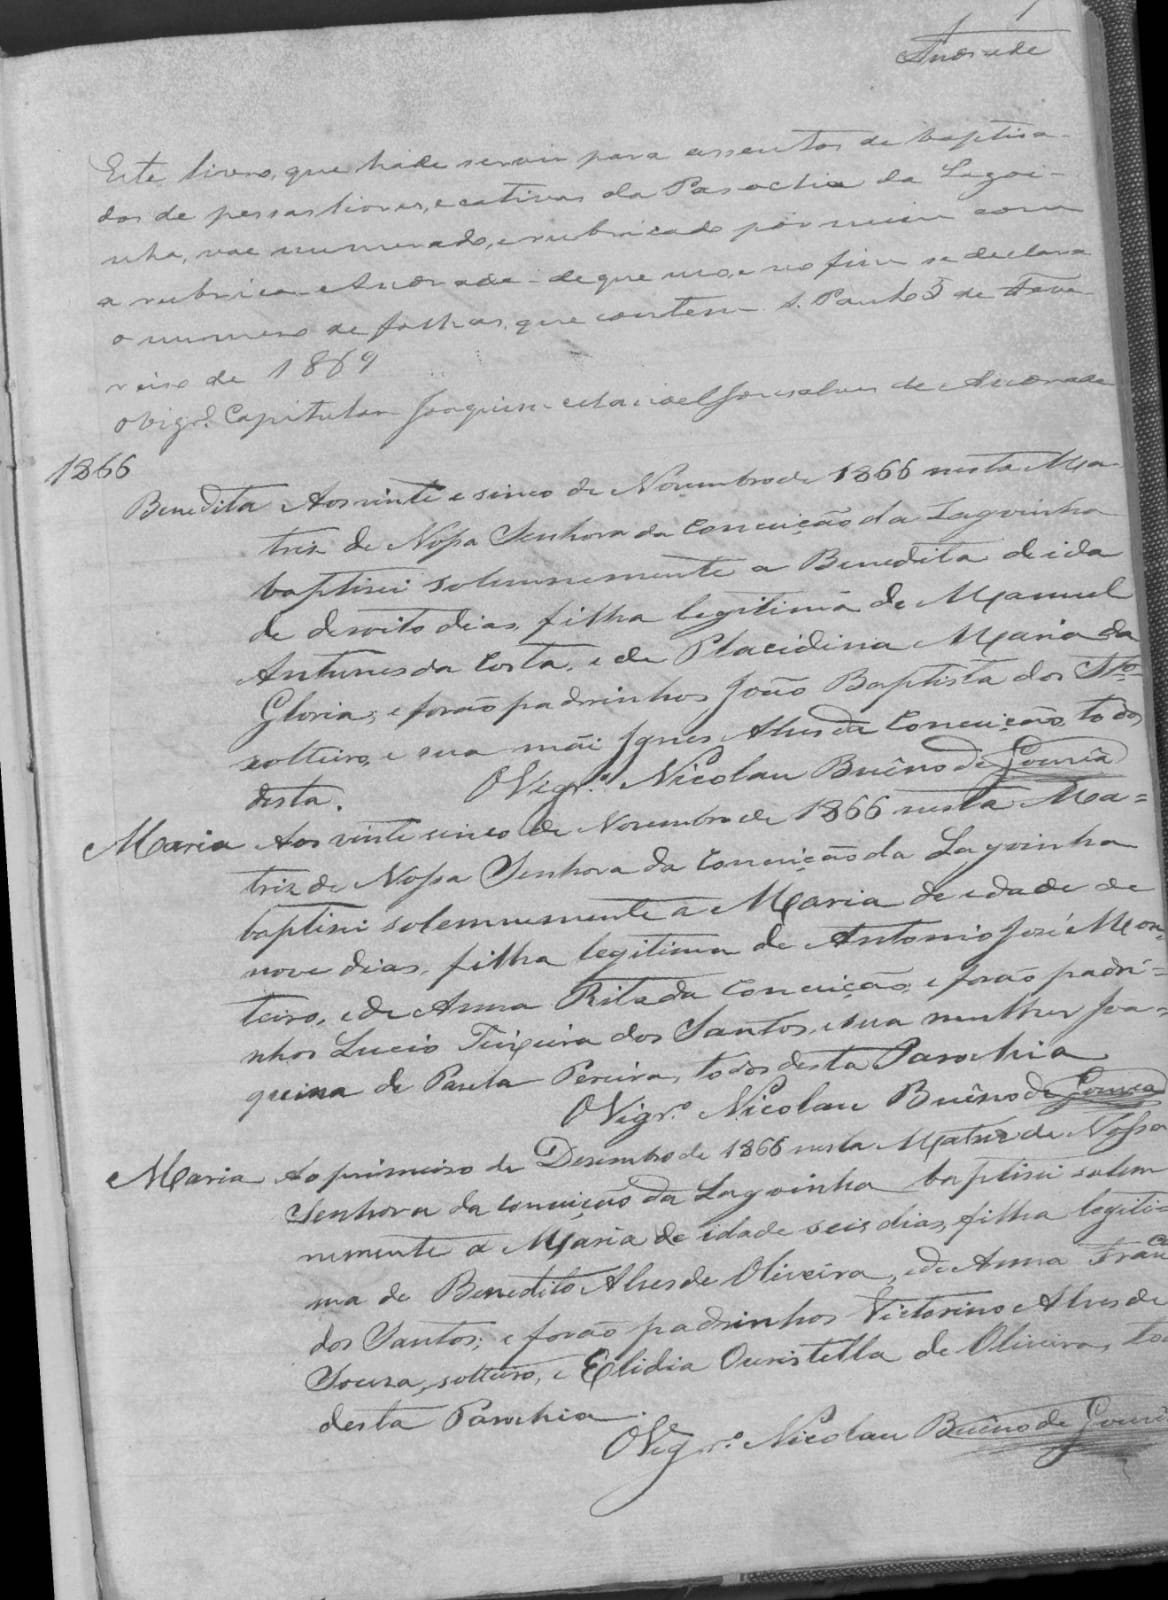 1
Andrade
Este livro, que hade servir para assentos de baptisa-
dos de pessas livres, e cativas da Parochia da Lagoi-
nha, vae numerado, e rubricado por mim com
a rubrica - Andrade - de que uso, e no fim se declara
o numero de folhas, que contem. S. Paulo 5 de Feve-
reiro de 1869
O Vigrº Capitular Joaquim Manoel Gonsalves de Andrade
1866
Benedita Aos vinte e sinco de Novembro de 1866 nesta Ma-
triz de Nossa Senhora da Conceição da Lagoinha
baptisei solemnemente a Benedita de ida
de desoito dias, filha legitima de Manuel
Antunes da Costa, e de Placidina Maria da
Gloria; e forão padrinhos João Baptista dos Stos
solteiro, e sua mãi Ignes Alves da Conceição, todos
desta. O Vigrº Nicolau Buêno de Gouvêa
Maria Aos vinte sinco de Novembro de 1866 nesta Ma=
triz de Nossa Senhora da Conceição da Lagoinha
baptisei solemnemente a Maria de idade de
nove dias, filha legitima de Antonio José Mon-
teiro, e de Anna Rita da Conceição; e forão padri-
nhos Lucio Teixeira dos Santos, e sua mulher Joa-
quina de Paula Pereira, todos desta Parochia
O Vigrº Nicolau Buêno de Gouvea
Maria Ao primeiro de Desembro de 1866 nesta Matriz de Nossa
Senhora da Conceição da Lagoinha baptisei solem
nemente a Maria de idade seis dias, filha legiti=
ma de Benedito Alves de Oliveira, e de Anna Francᵃ
dos Santos; e forão padrinhos Victorino Alves de
Souza, solteiro, e Elidia Ouristella de Oliveira, to
desta Parochia.
O Vigrº Nicolau Buêno de Gouvêa